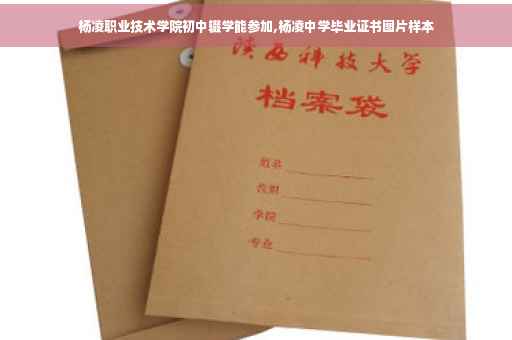 杨凌职业技术学院初中辍学能参加,杨凌中学毕业证书图片样本
陕西科技大学
档案袋
姓名
学院
专业